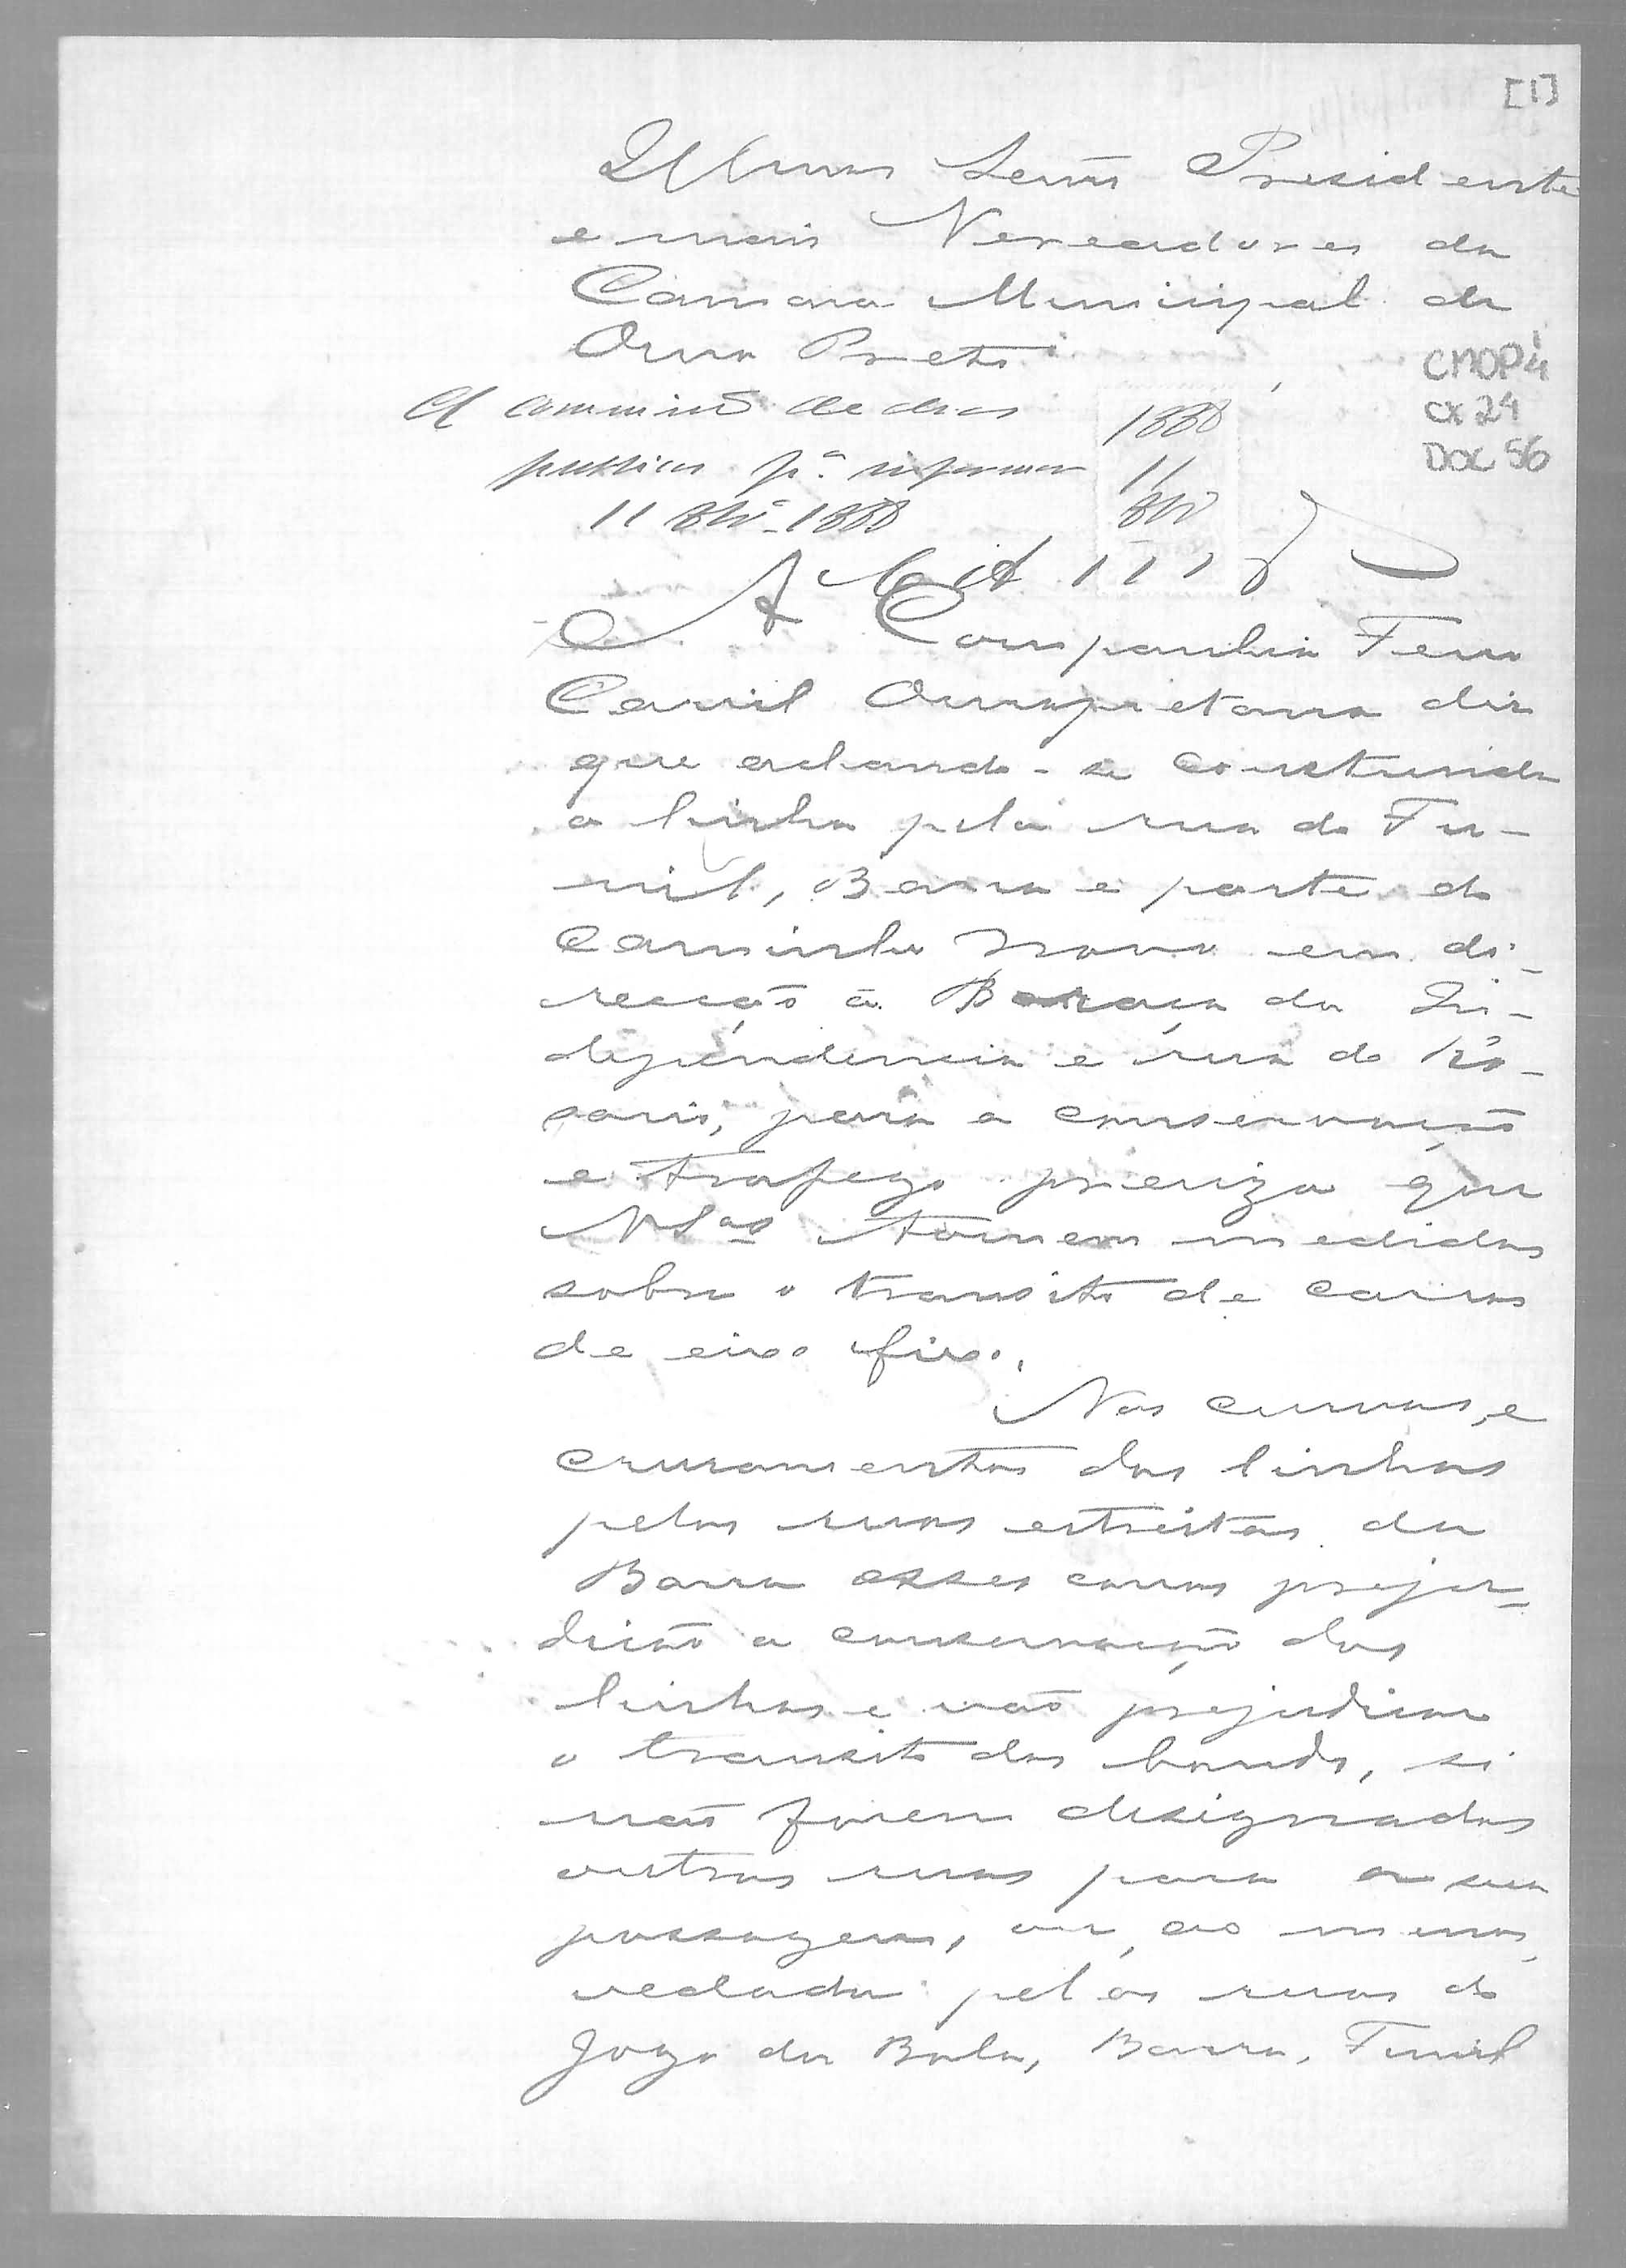 [1]
Illmos Senrs Presidente
e mais Vereadores da
Camara Municipal de
Ouro Preto
CMOP 4
cx 24
DOC 56
A commissão de obras
publicas pa. informar
11 8bro 1888
1888
11
8bro
A Companhia Ferro
Carril Ouropretana diz
que achando-se construida
a linha pela rua do Fu-
nil, Barra e parte do
Caminho Novo em di-
recção á Barra da In-
dependencia e rua do Ro-
sario, para a conservação
e trafego preciza que
VSas tomem medidas
sobre o transito de carros
de eixo fixo.
Nas curvas e
cruzamentos das linhas
pelas ruas estreitas da
Barra esses carros preju-
dicão a conservação das
linhas e vão prejudicar
o transito dos bonds, si
não forem designadas
outras ruas para a sua
passagem, ou, ao menos,
vedada pelas ruas do
Jogo da Bola, Barra, Funil